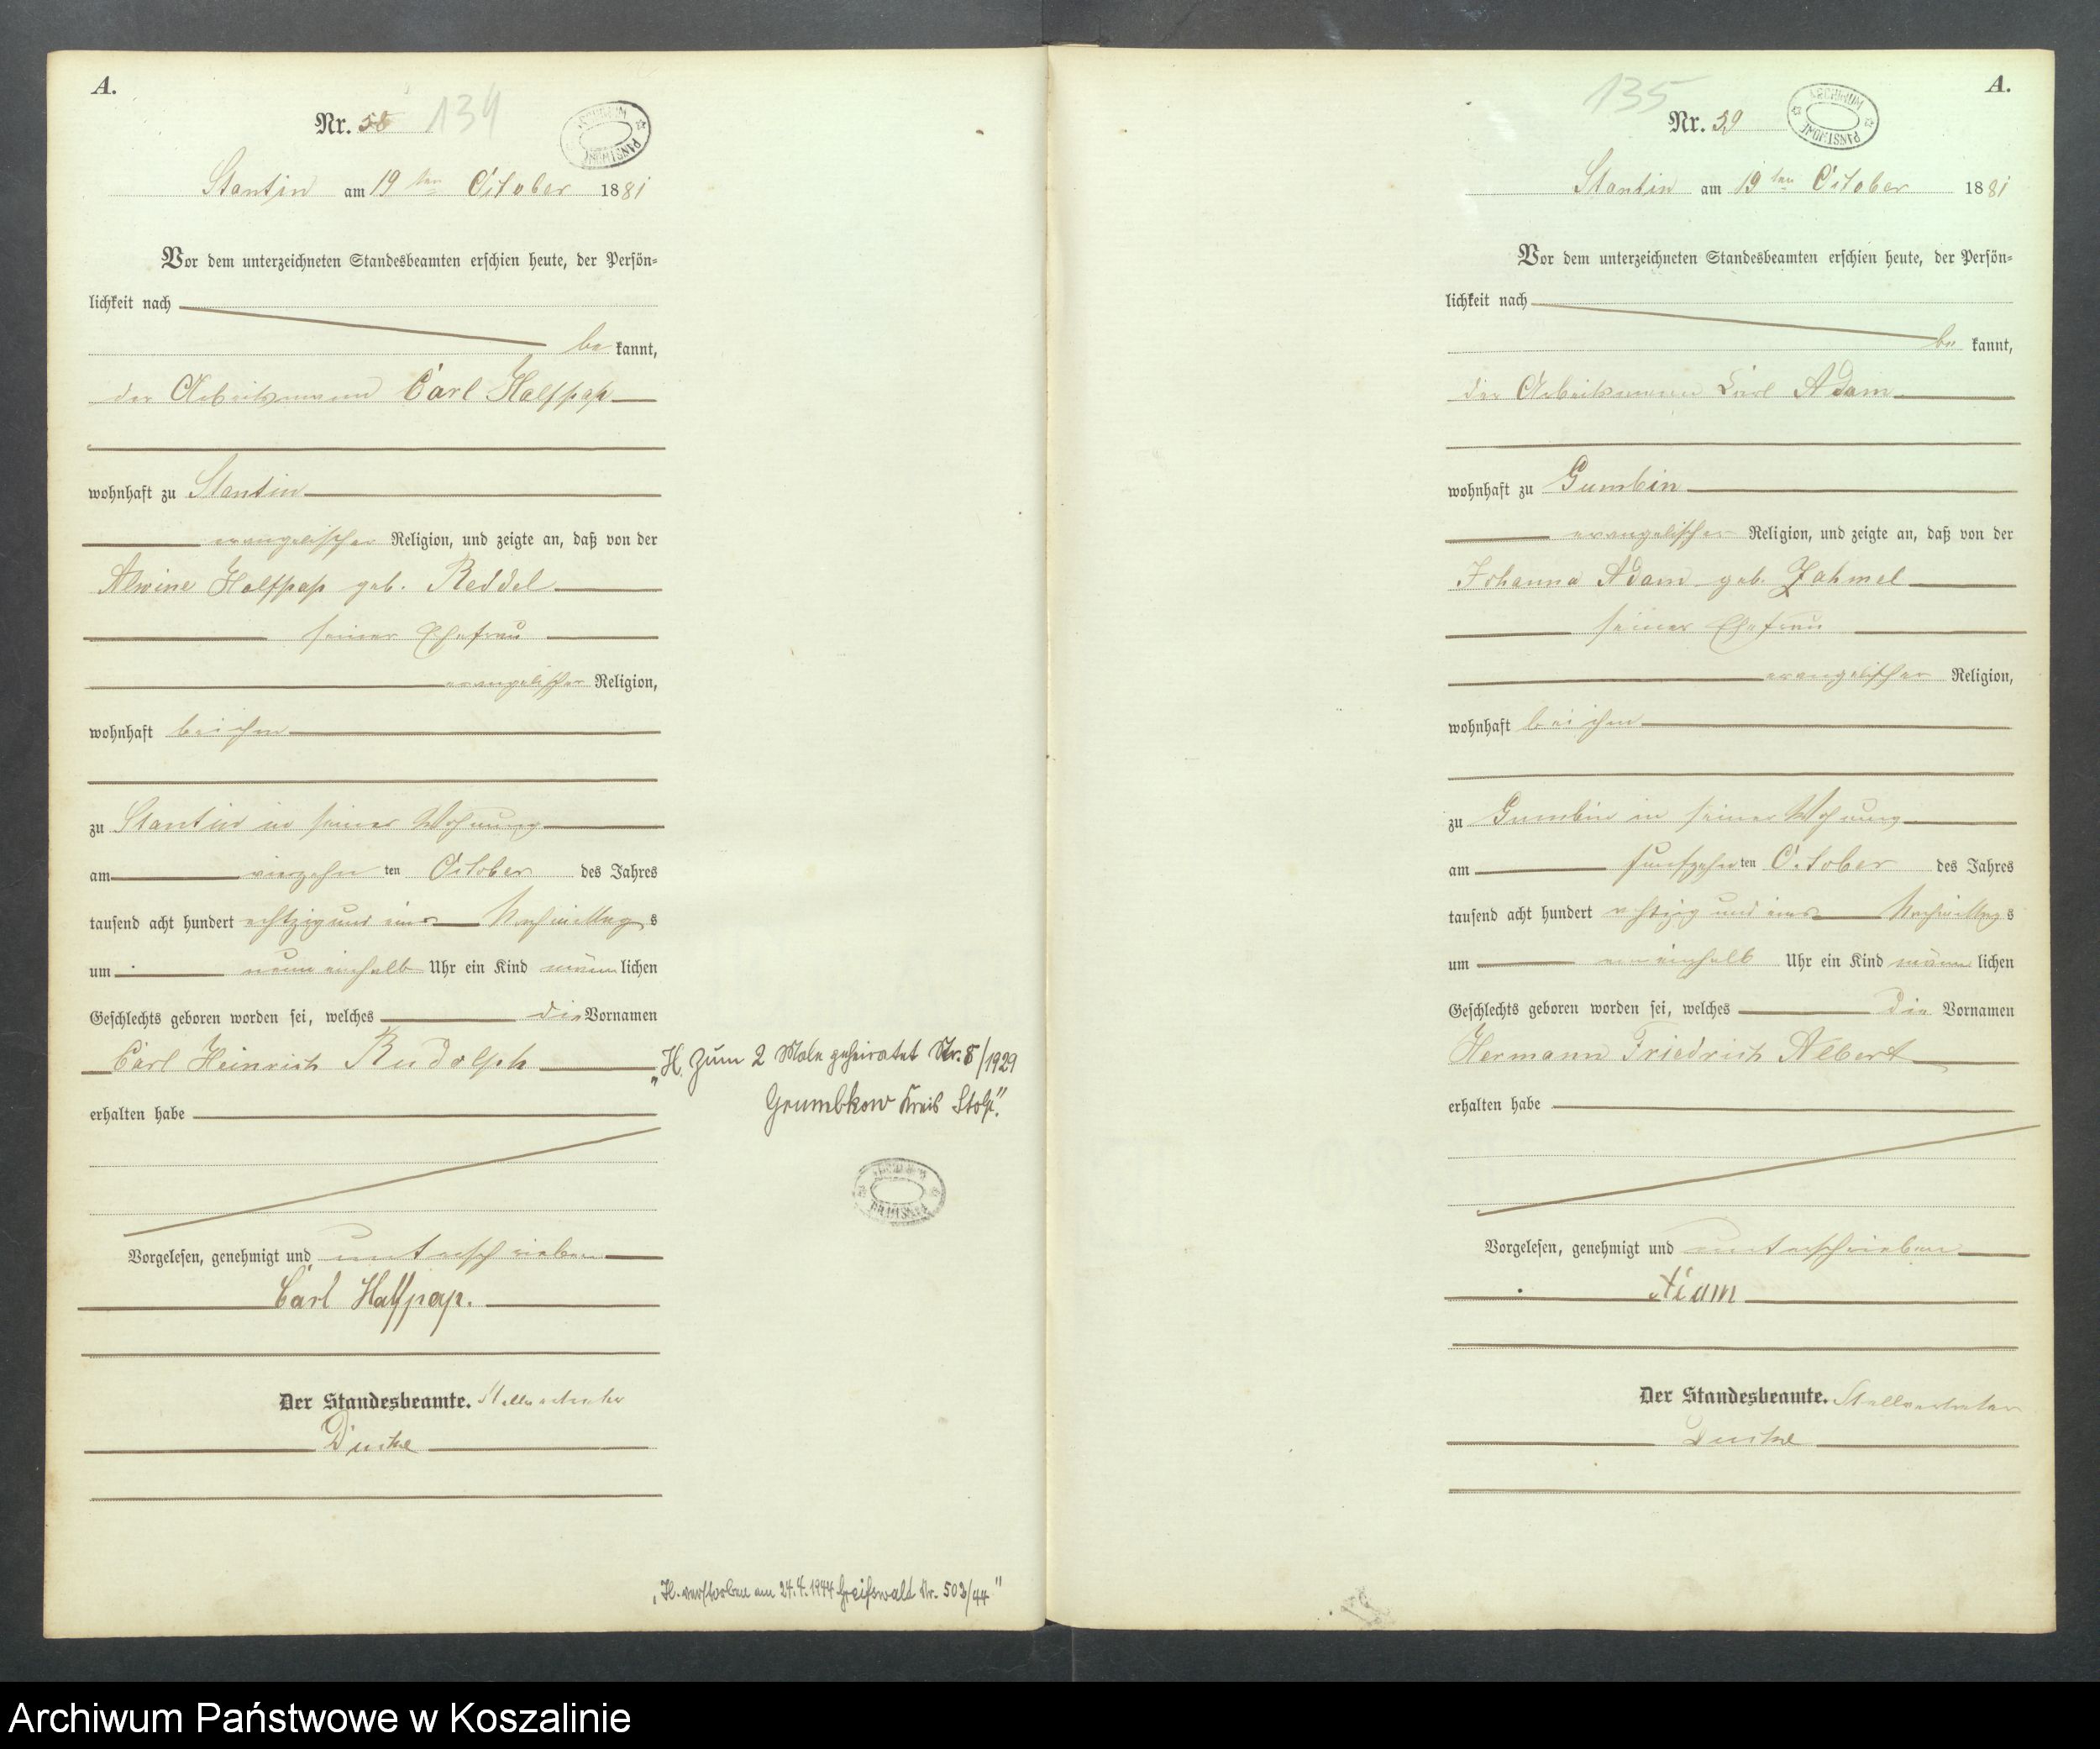 A.
Nr. 58 134
Stantin am 19ten October 1881
Vor dem unterzeichneten Standesbeamten erschien heute, der Persön=
lichkeit nach
be kannt,
der Arbeitsmann Carl Halfpap
wohnhaft zu Stantin
evangelischer Religion, und zeigte an, daß von der
Alwine Halfpap geb. Reddel
seiner Ehefrau
evangelischer Religion,
wohnhaft bei ihm
zu Stantin in seiner Wohnung
am vierzehn ten October des Jahres
tausend acht hundert achtzig und eins Nachmittag s
um neun einhalb Uhr ein Kind männ lichen
Geschlechts geboren worden sei, welches die Vornamen
Carl Heinrich Rudolph
erhalten habe
Vorgelesen, genehmigt und unterschrieben
Carl Halfpap.
Der Standesbeamte. Stellvertreter
"H. zum 2 Male geheiratet Nr. 8/1929
Grumbkow Kreis Stolp."
"H. verstorben am 24.4.1944 Greifswald Nr. 503/44"
A.
135
Nr. 59
ARCHIWUM PAŃSTWOWE
Stantin am 19ten October 1881
Vor dem unterzeichneten Standesbeamten erschien heute, der Persön=
lichkeit nach
be kannt,
der Arbeitsmann Carl Adam
wohnhaft zu Gumbin
evangelischer Religion, und zeigte an, daß von der
Johanna Adam geb. Zahmel
seiner Ehefrau
evangelischer Religion,
wohnhaft bei ihm
zu Gumbin in seiner Wohnung
am fünfzehn ten October des Jahres
tausend acht hundert achtzig und eins Nachmittag s
um Uhr ein Kind männ lichen
Geschlechts geboren worden sei, welches die Vornamen
Hermann Friedrich Albert
erhalten habe
Vorgelesen, genehmigt und unterschrieben
Adam
Der Standesbeamte. Stellvertreter
Archiwum Państwowe w Koszalinie